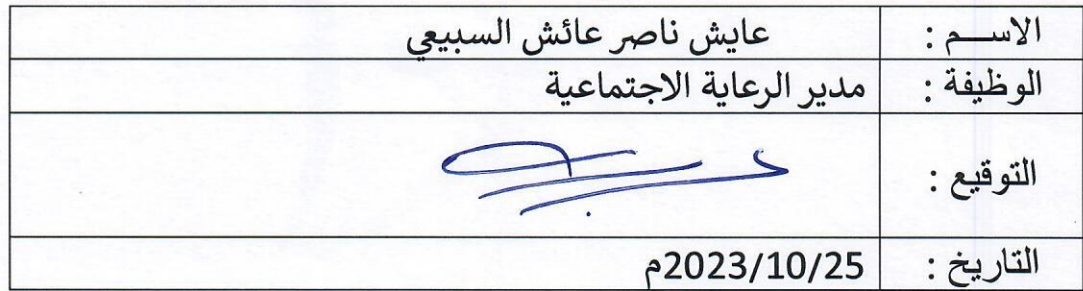 الاســـم : عايش ناصر عائش السبيعي
الوظيفة : مدير الرعاية الاجتماعية
التوقيع :
التاريخ : 2023/10/25م